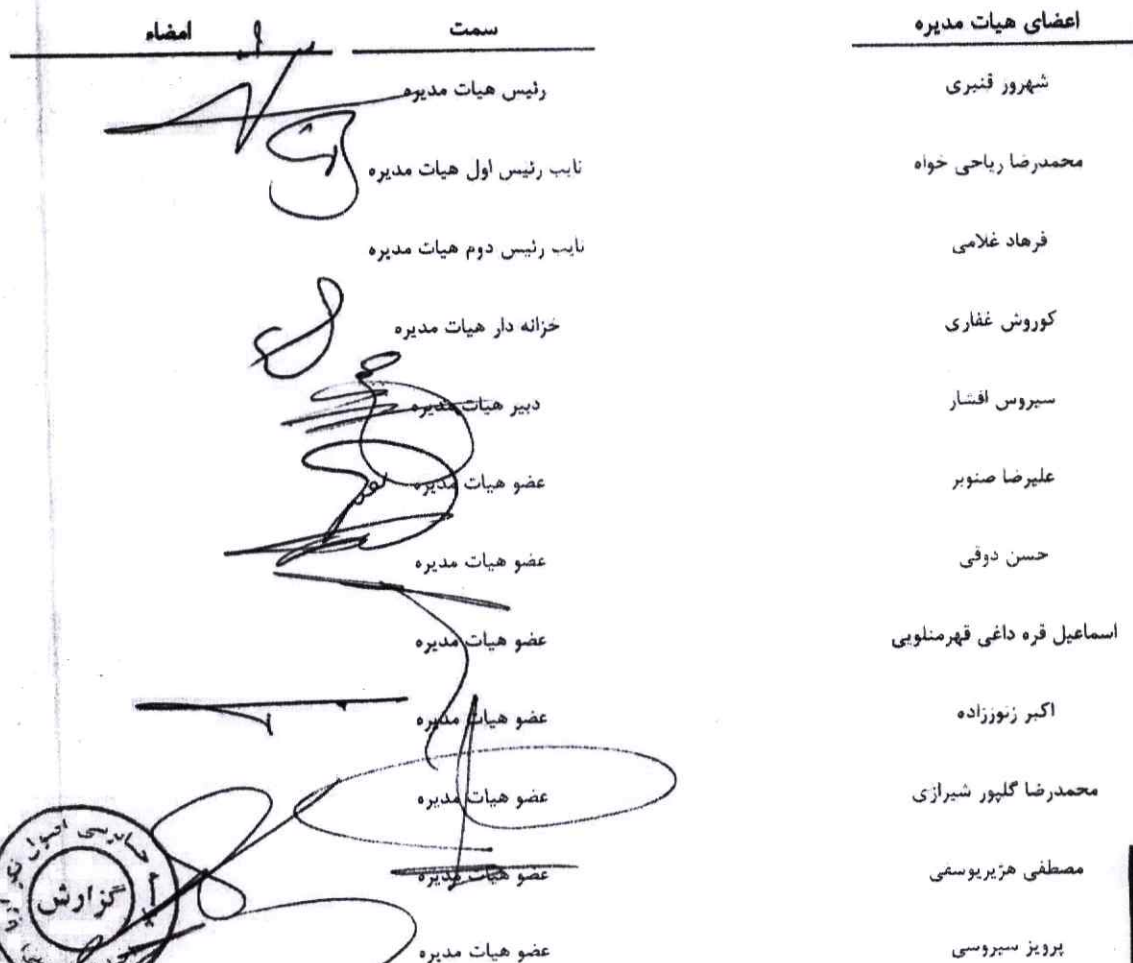 اعضای هیات مدیره سمت امضاء
شهرور قنبری رئیس هیات مدیره
محمدرضا ریاحی خواه نایب رئیس اول هیات مدیره
فرهاد غلامی نایب رئیس دوم هیات مدیره
کوروش غفاری خزانه دار هیات مدیره
سیروس افشار دبیر هیات مدیره
علیرضا صنوبر عضو هیات مدیره
حسن دوقی عضو هیات مدیره
اسماعیل قره داغی قهرمنلویی عضو هیات مدیره
اکبر زنوززاده عضو هیات مدیره
محمدرضا گلپور شیرازی عضو هیات مدیره
مصطفی هژیریوسفی عضو هیات مدیره
پرویز سیروسی عضو هیات مدیره
حسابرسی اصول
گزارش